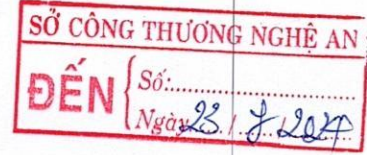 SỞ CÔNG THƯƠNG NGHỆ AN
ĐẾN
Số:......................
Ngày 23 /